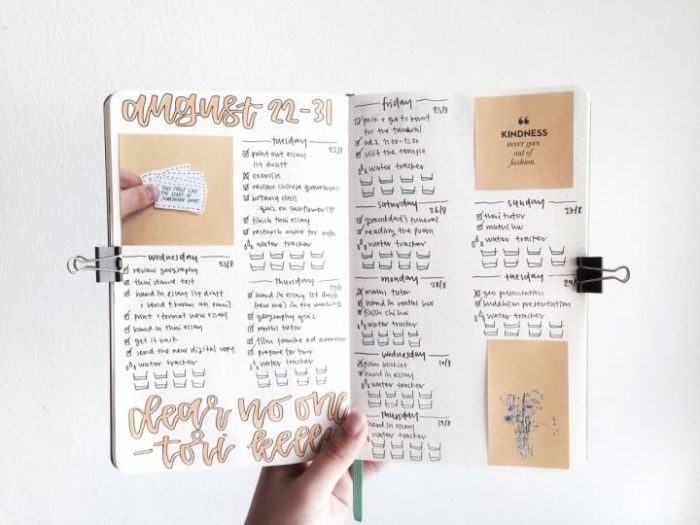 august 22-31
tuesday
22/8
print out essay
1st draft
exercise
review chinese grammar
botany class
quiz on sunflower!!!
finish thai essay
research more for
water tracker
THIS FEELS LIKE
THE START OF
SOMETHING GOOD!
wednesday
23/8
review geography
thai dance test
hand in essay 1st draft
send tkwan an email
print + format new essay
hand in thai essay
get it back
send the new digital copy
water tracker
thursday
hand in essay 1st draft
in the morning
geography quiz
maths tutor
film
prepare for
water tracker
dear no one
-tori kelly
friday
25/8
pack + go to
for the funeral
11.00-12.00
visit the temple
water tracker
saturday
26/8
granddad's funeral
reading the poem
water tracker
monday
28/8
maths tutor
hand in maths hw
finish chi hw
water tracker
wednesday
booklet
hand in essay
water tracker
thursday
hand in essay
water tracker
“
KINDNESS
never goes
out of
fashion.
sunday
27/8
thai tutor
maths hw
water tracker
tuesday
29/8
geo presentation
buddhism presentation
water tracker